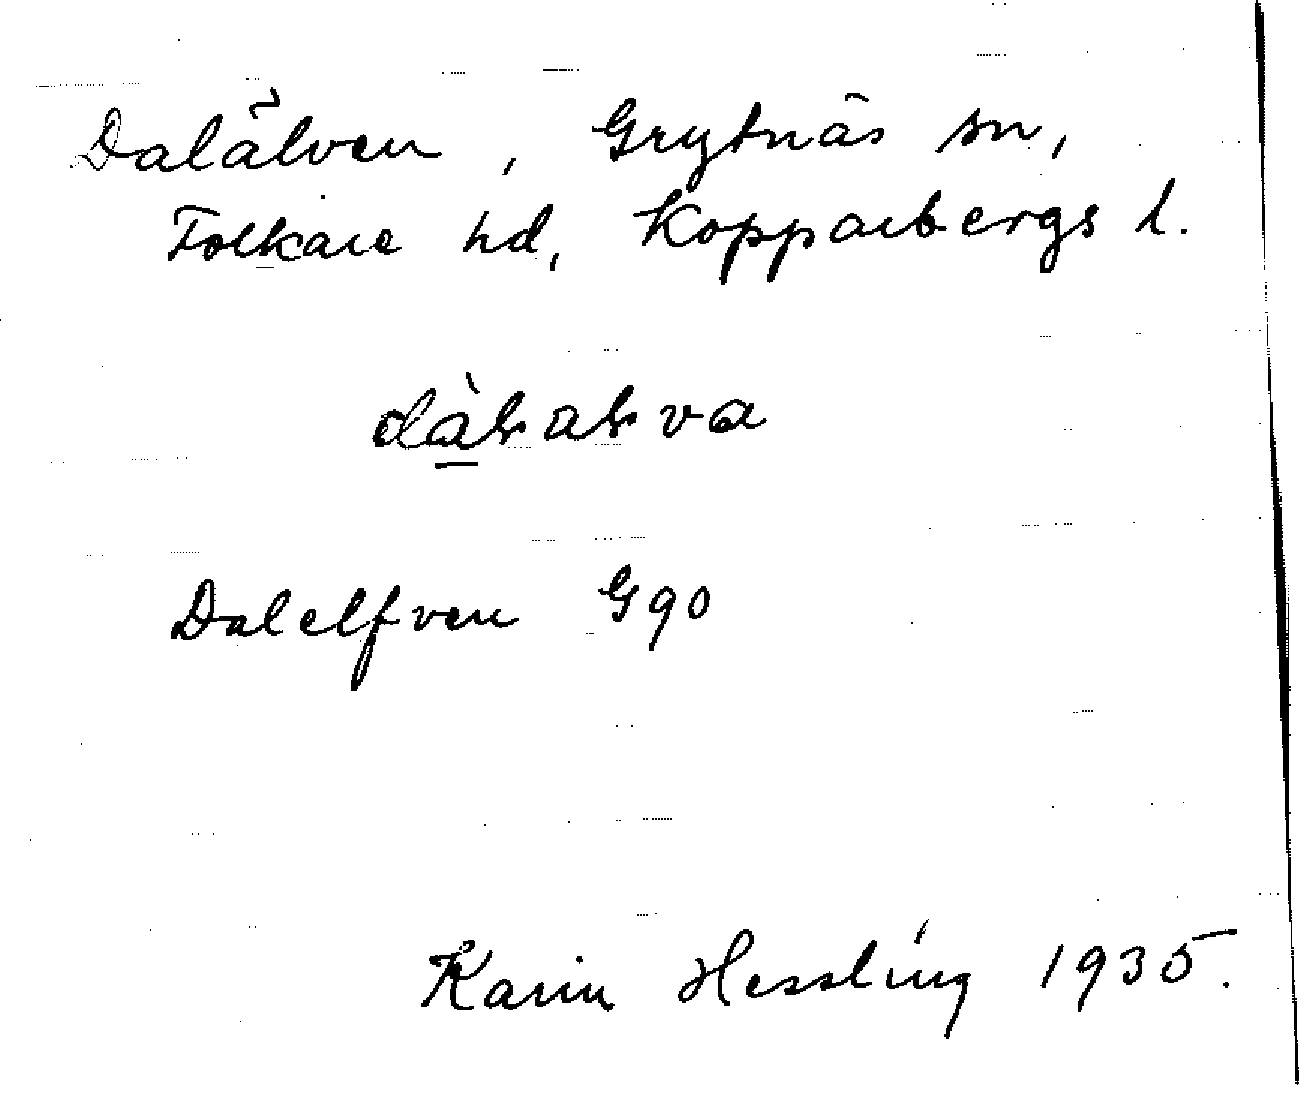 Dalälven, Grytnäs sn,
Folkare hd, Kopparbergs l.
Dalelfven G90
Karin Hessling 1935.